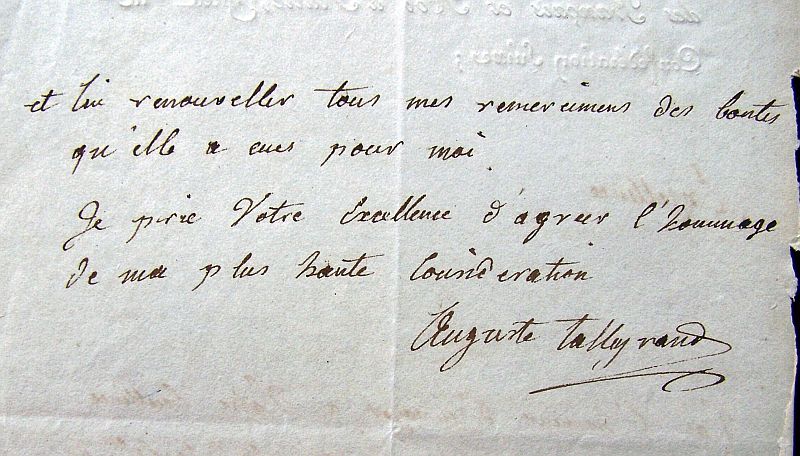 et lui renouveller tous mes remercimens des bontes
qu'elle a eues pour moi
Je prie Votre Excellence d'agréer l'hommage
de ma plus haute Considération
Auguste Talleyrand